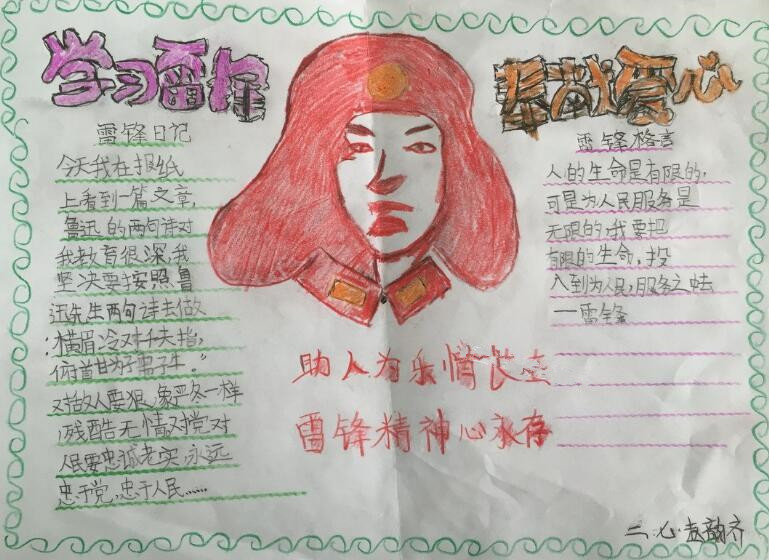 学习雷锋
奉献爱心
雷锋日记
今天我在报纸
上看到一篇文章,
鲁迅的两句诗对
我教育很深,我
坚决要按照鲁
迅先生两句诗去做
:"横眉冷对千夫指,
俯首甘为孺子牛。"
对敌人要狠,象严冬一样
残酷无情对党对
人民要忠诚老实,永远
忠于党,忠于人民……
雷锋格言
人的生命是有限的,
可是为人民服务是
无限的,我要把
有限的生命,投
入到为人民服务之中去
——雷锋
助人为乐情长在
雷锋精神心永存
二.七.韵齐